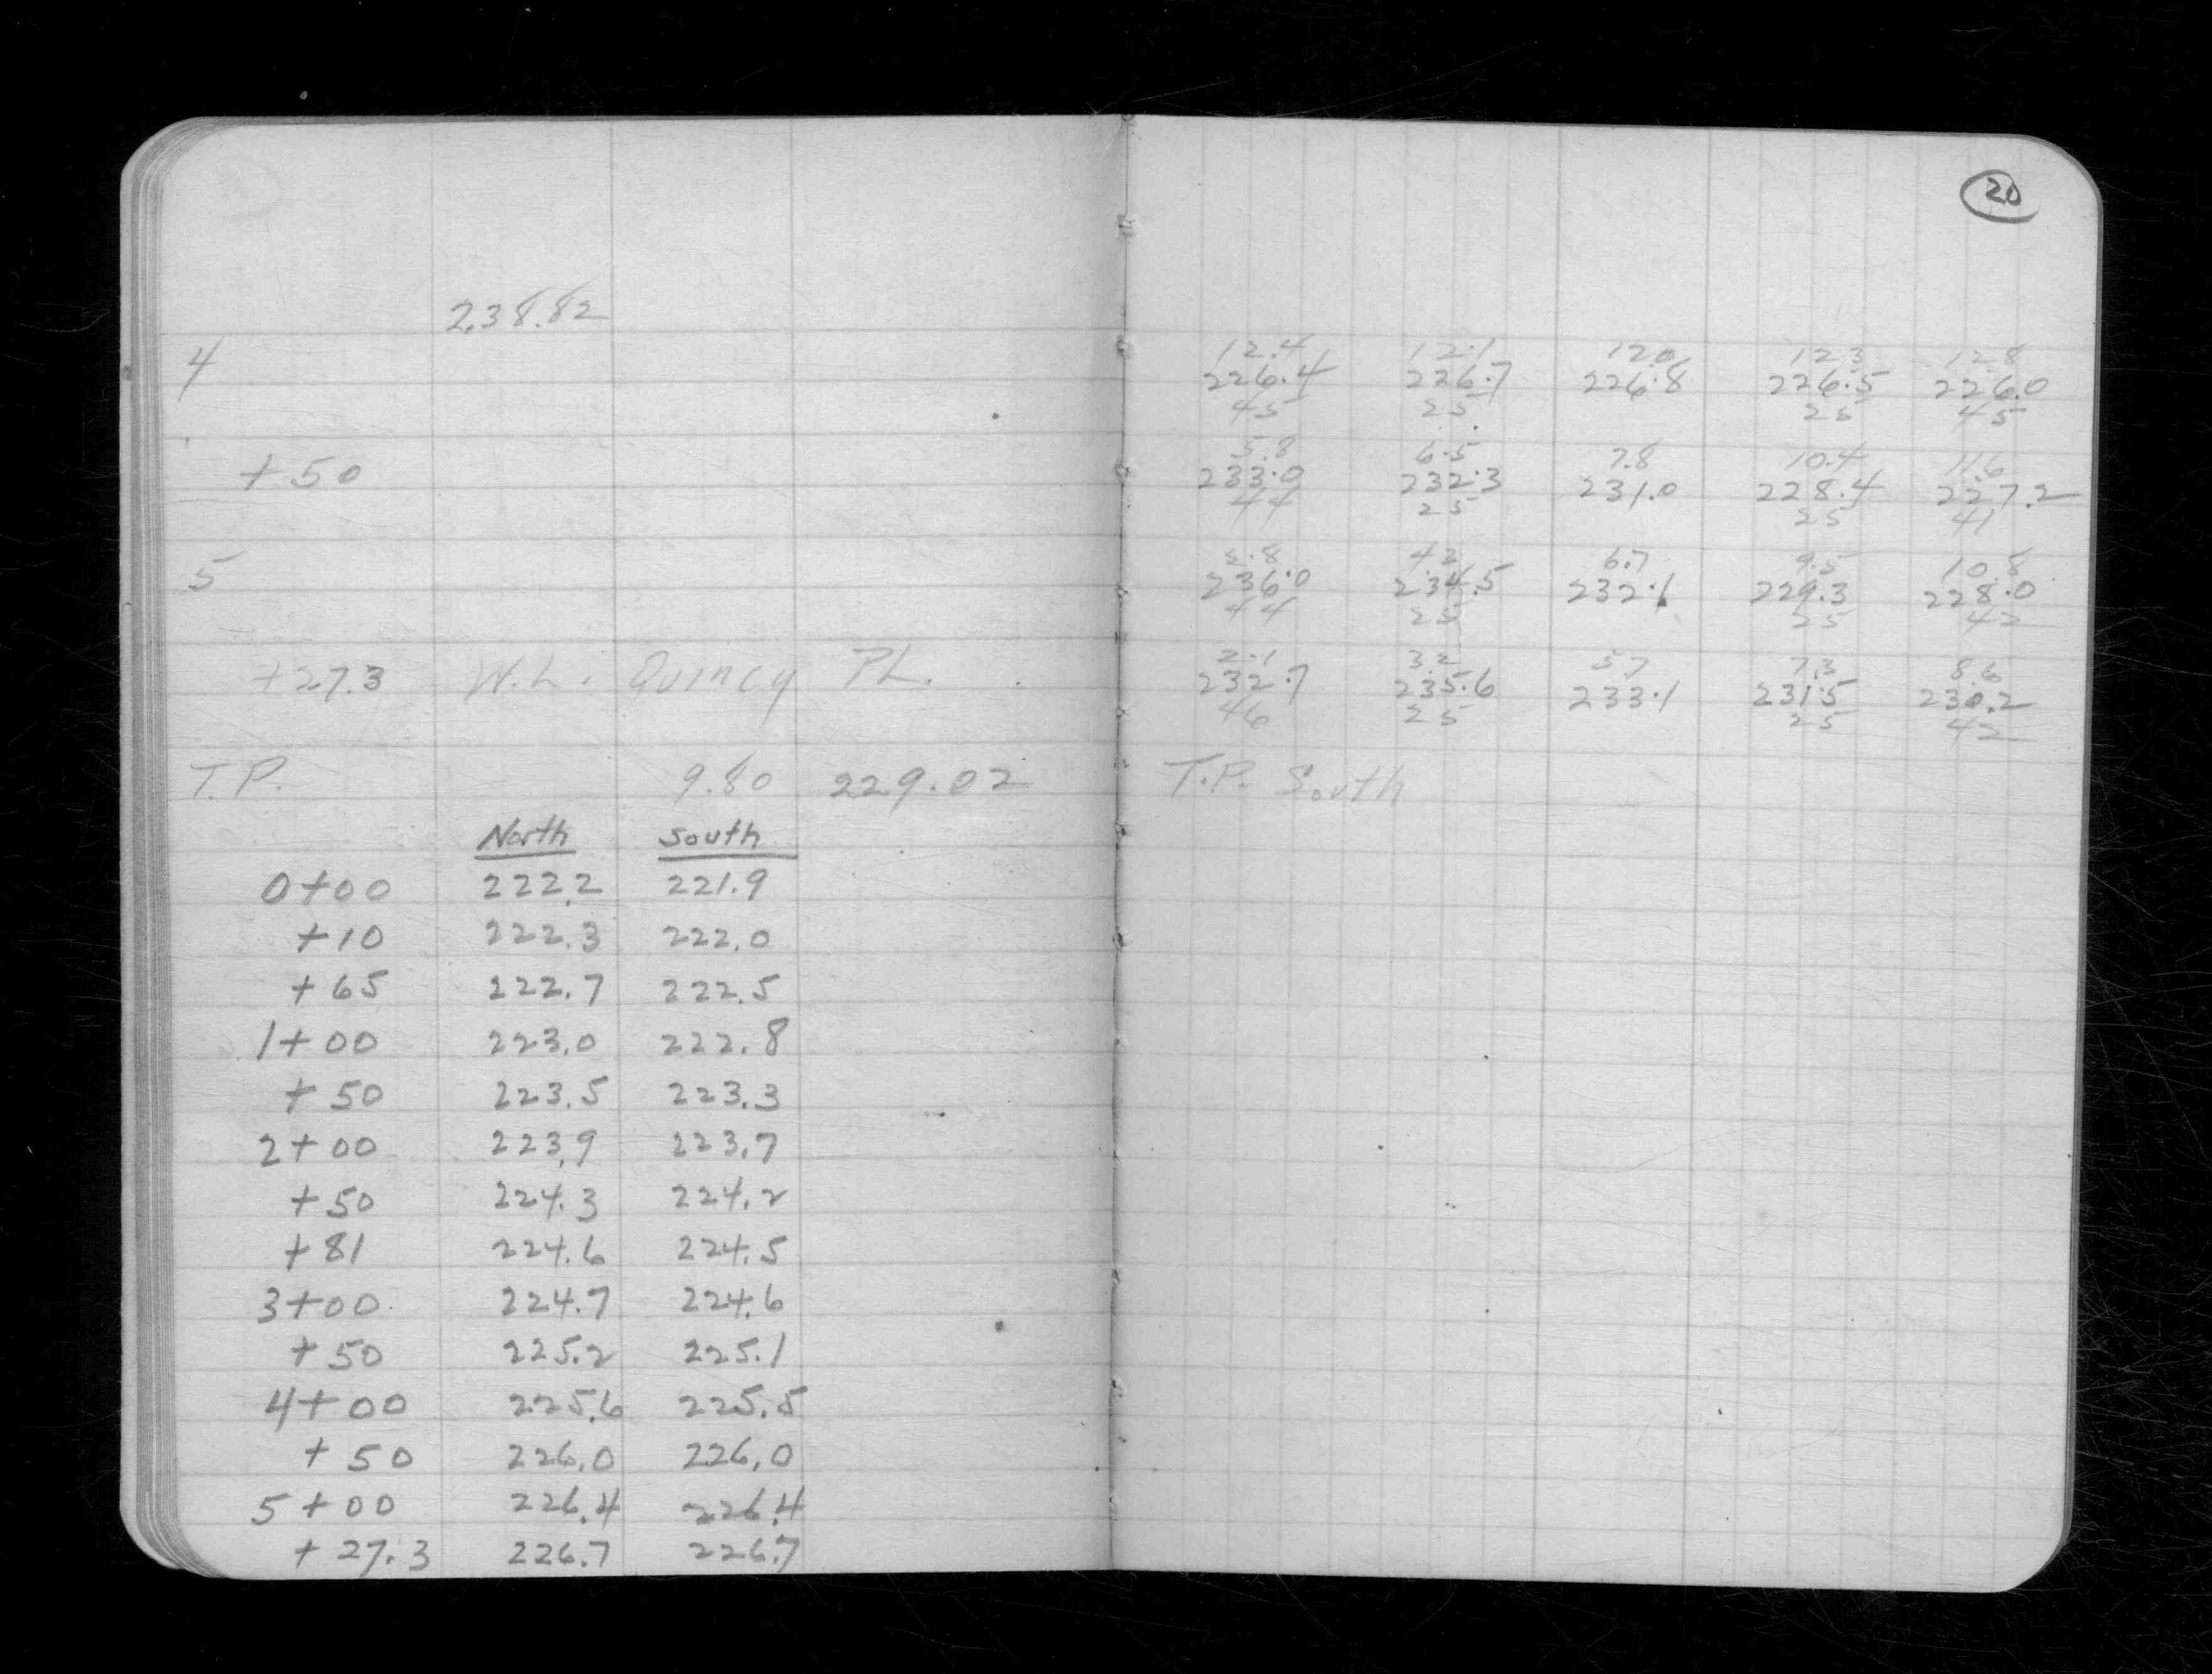 20
238.82
4
12.4 12.1 12.0 12.3 12.8
226.4 226.7 226.8 226.5 226.0
45 25 25 45
+50
5.8 6.5 7.8 10.4 11.6
233.0 232.3 231.0 228.4 227.2
44 25 25 41
5
2.8 4.3 6.7 9.5 10.8
236.0 234.5 232.1 229.3 228.0
44 25 25 42
+27.3 W.L. Quincy PL.
2.1 3.2 5.7 7.3 8.6
232.7 235.6 233.1 231.5 230.2
46 25 25 42
T.P. 9.80 229.02 T.P. South
North South
0+00 222.2 221.9
+10 222.3 222.0
+65 222.7 222.5
1+00 223.0 222.8
+50 223.5 223.3
2+00 223.9 223.7
+50 224.3 224.2
+81 224.6 224.5
3+00 224.7 224.6
+50 225.2 225.1
4+00 225.6 225.5
+50 226.0 226.0
5+00 226.4 226.4
+27.3 226.7 226.7